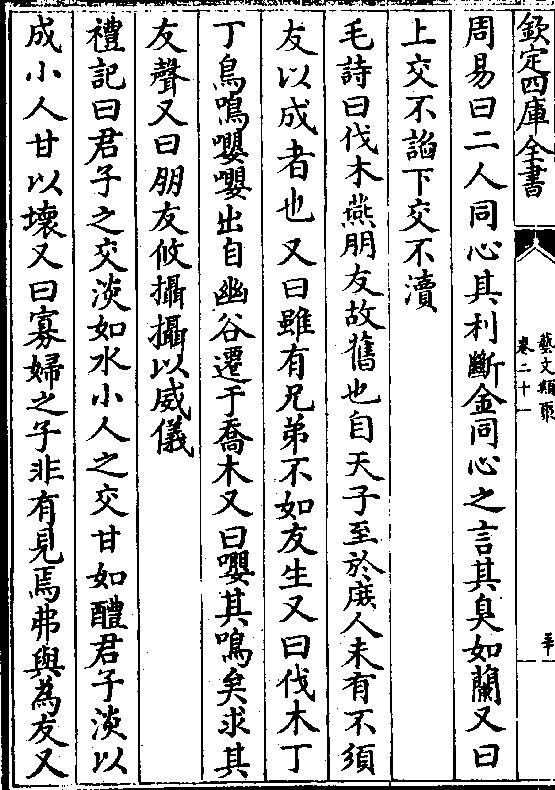 欽定四庫全書
藝文類聚
卷二十一
周易曰二人同心其利斷金同心之言其臭如蘭又曰
上交不謟下交不瀆
毛詩曰伐木燕朋友故舊也自天子至於庻人未有不須
友以成者也又曰雖有兄弟不如友生又曰伐木丁
丁鳥鳴嚶嚶出自幽谷遷于喬木又曰嚶其鳴矣求其
友聲又曰朋友攸攝攝以威儀
禮記曰君子之交淡如水小人之交甘如醴君子淡以
成小人甘以壊又曰寡婦之子非有見焉弗與為友又